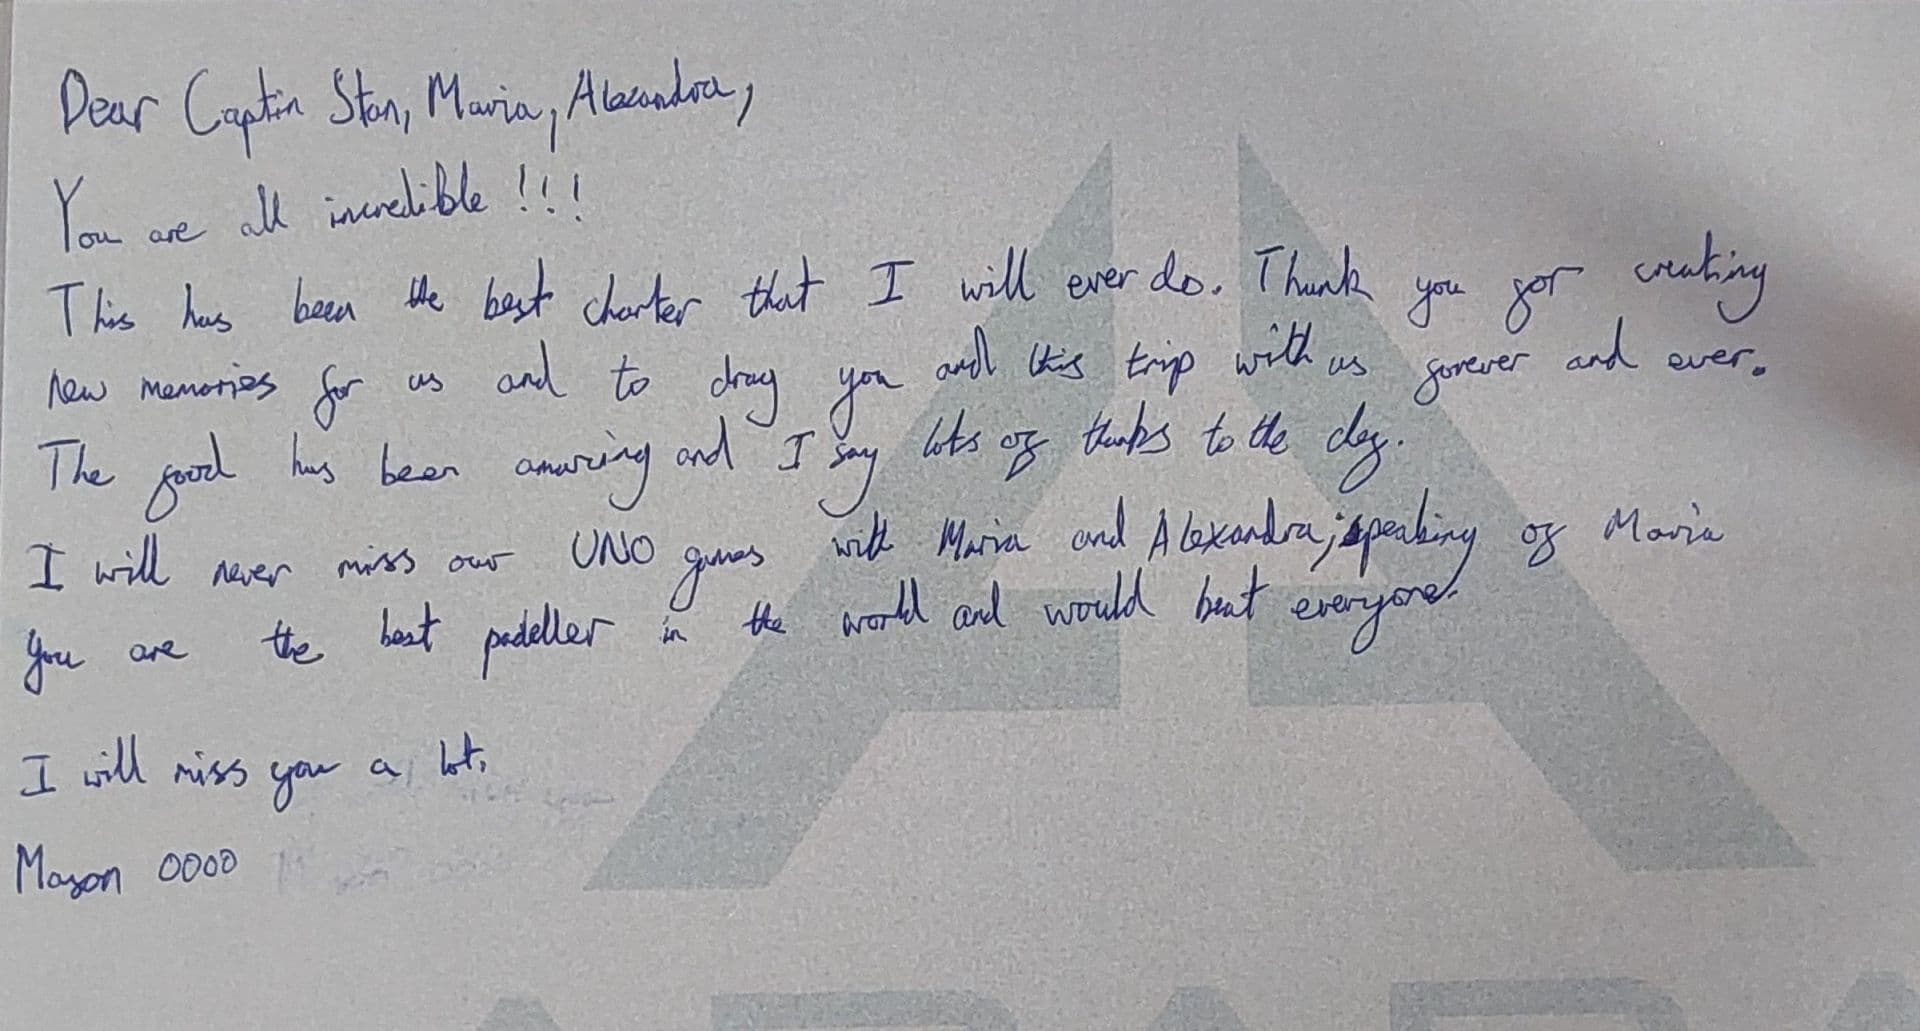 Dear Captin Stan, Maria, Alexandra,
You are all incredible !!!
This has been the best charter that I will ever do. Thank you for creating
new memories for us and to drag you and this trip with us forever and ever.
The food has been amazing and I say lots of thanks to the
I will never miss our UNO games with Maria and Alexandra; speaking of Maria
you are the best padeller in the world and would beat everyone.
I will miss you a lot.
Mason 0000